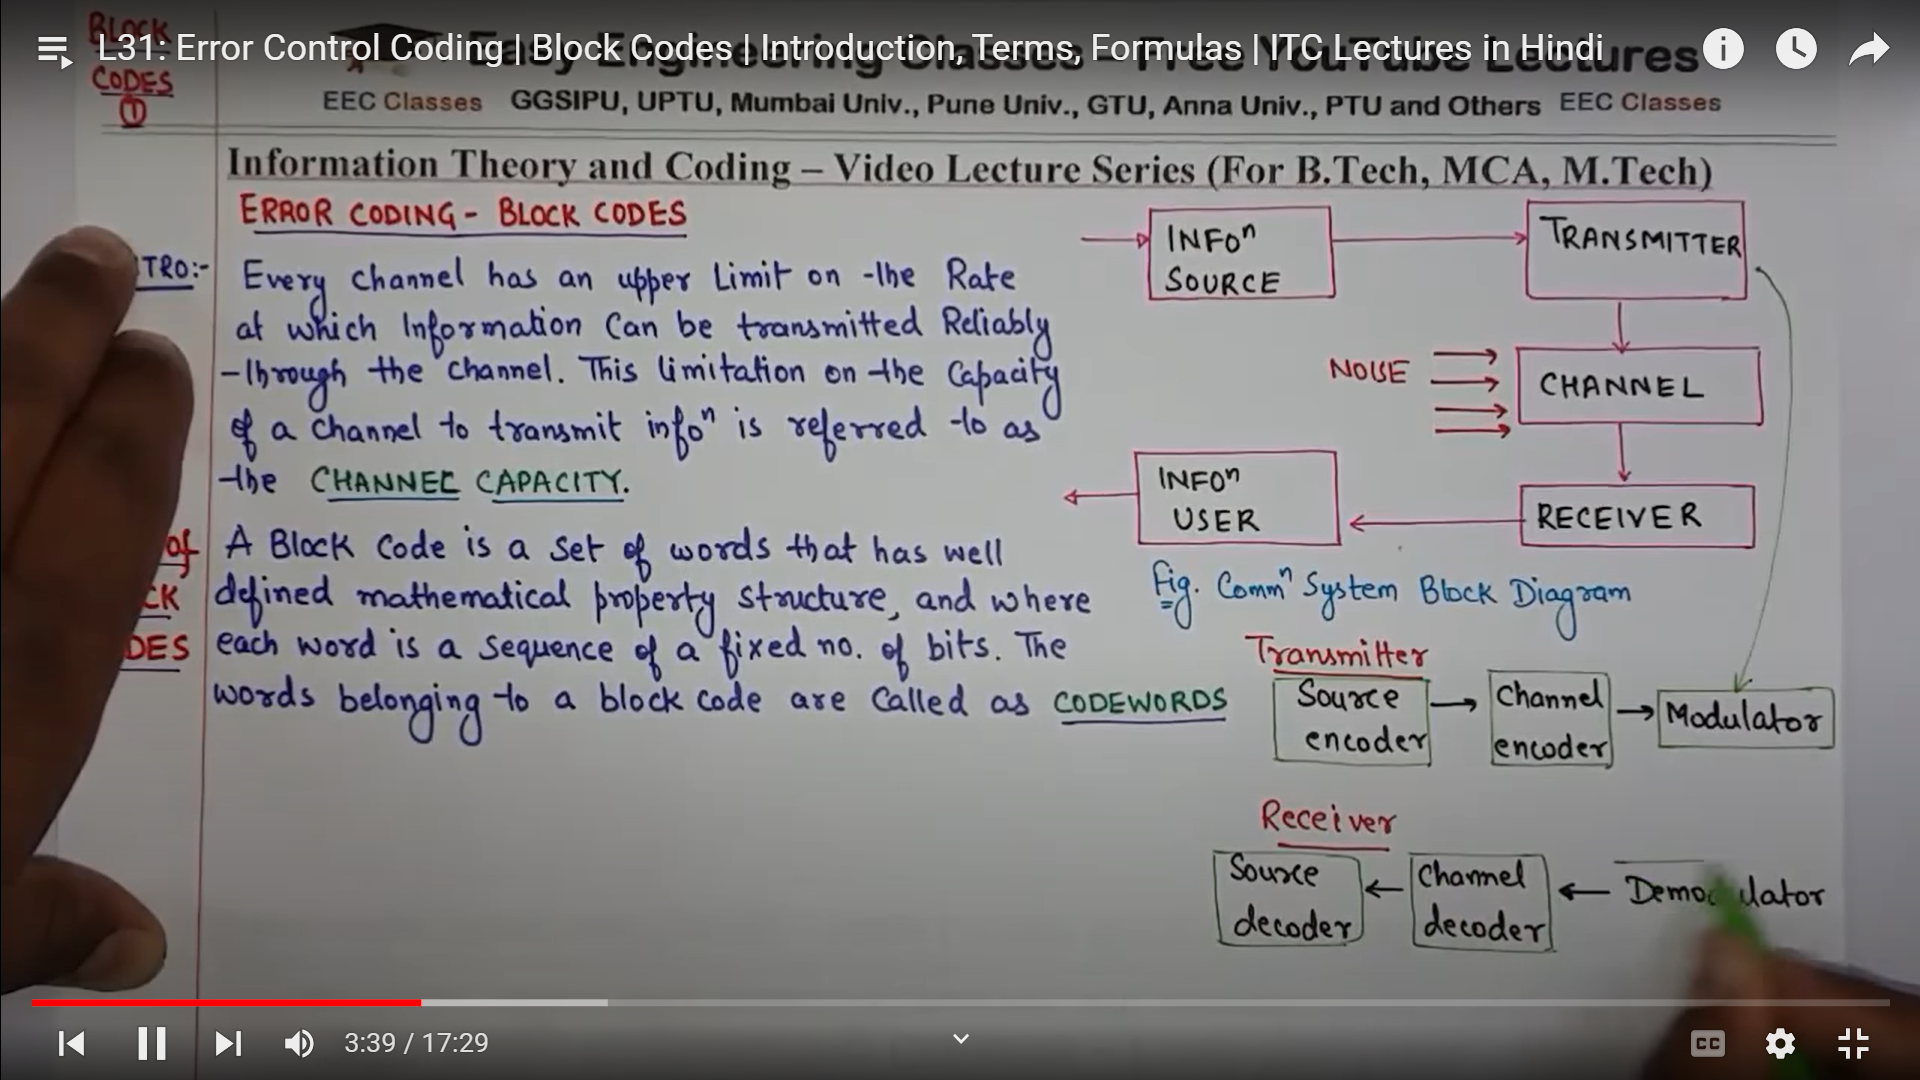 L31: Error Control Coding | Block Codes | Introduction, Terms, Formulas | ITC Lectures in Hindi
BLOCK
CODES
1
Easy Engineering Classes – Free YouTube Lectures
EEC Classes GGSIPU, UPTU, Mumbai Univ., Pune Univ., GTU, Anna Univ., PTU and Others EEC Classes
Information Theory and Coding – Video Lecture Series (For B.Tech, MCA, M.Tech)
ERROR CODING - BLOCK CODES
TRO:-
Every channel has an upper Limit on the Rate
at which Information Can be transmitted Reliably
through the channel. This limitation on the Capacity
of a channel to transmit infoⁿ is referred to as
the CHANNEL CAPACITY.
of
CK
DES
A Block Code is a set of words that has well
defined mathematical property structure, and where
each word is a sequence of a fixed no. of bits. The
words belonging to a block code are called as CODEWORDS
INFOⁿ
SOURCE
TRANSMITTER
NOISE
CHANNEL
INFOⁿ
USER
RECEIVER
Fig. Commⁿ System Block Diagram
Transmitter
Source
encoder
Channel
encoder
Modulator
Receiver
Source
decoder
Channel
decoder
Demodulator
3:39 / 17:29
CC